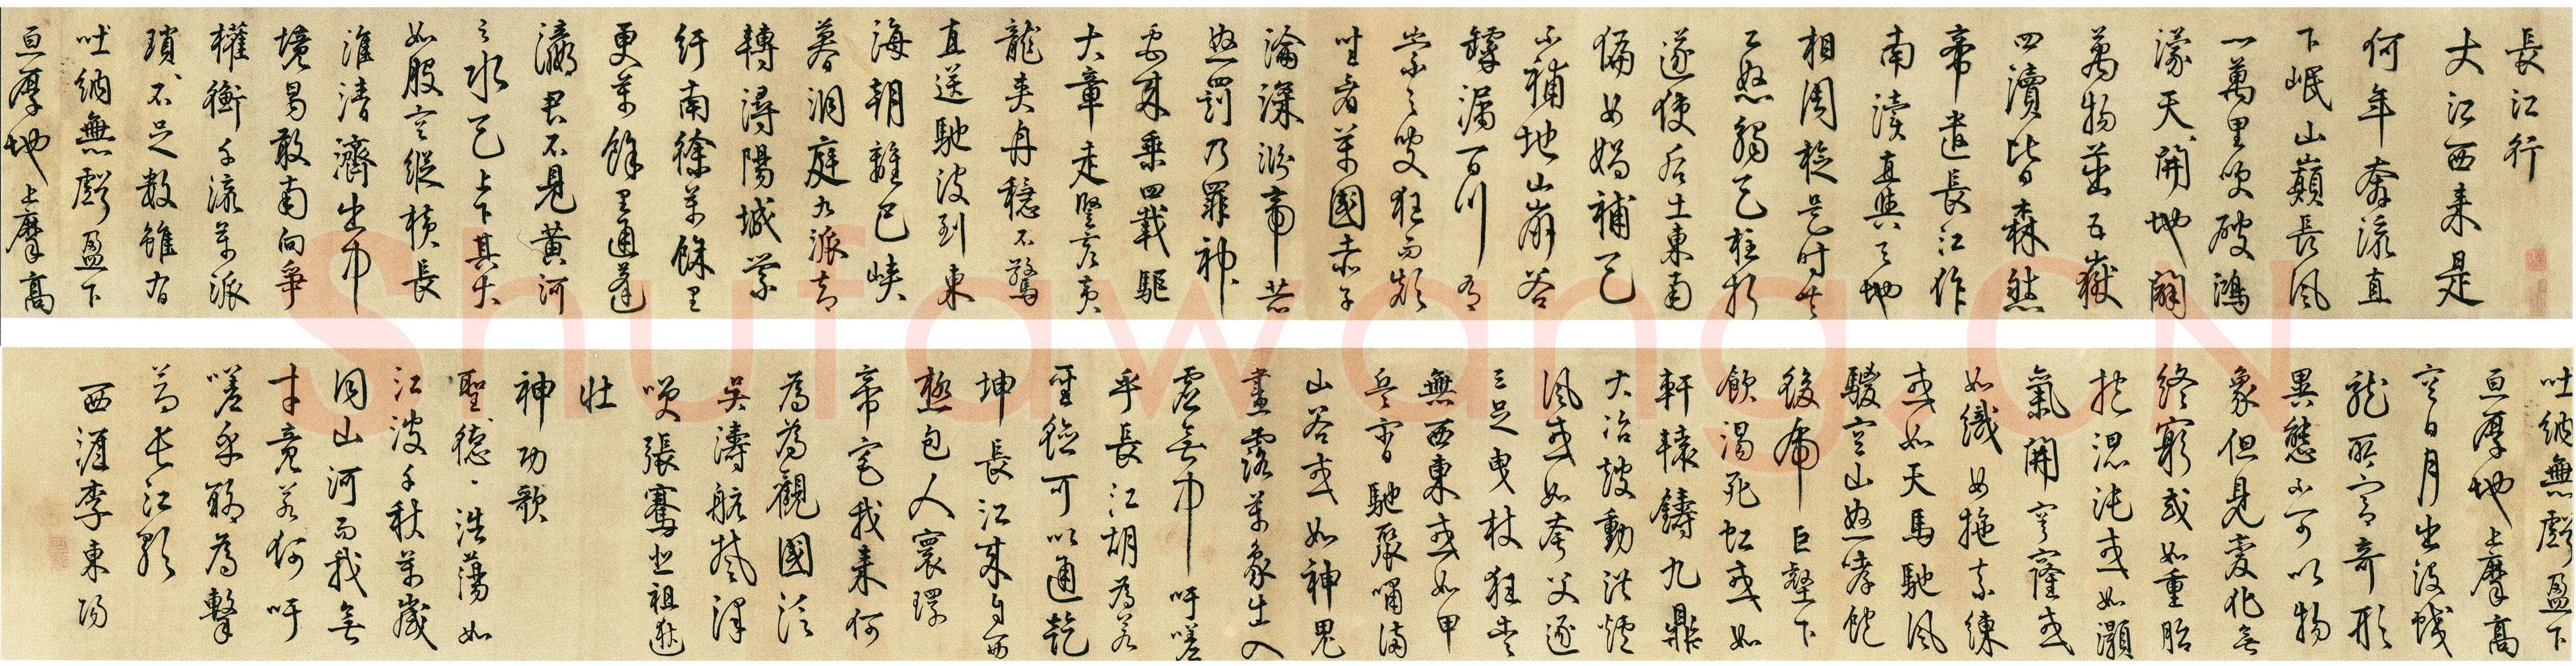 長江行
大江西来是
何年奔流直
下岷山巔長風
一萬里吹破鴻
濛天開地闢
萬物茁五嶽
四瀆皆森然
帝遣長江作
南瀆直與天地
相周旋是時共
工怒觸天柱折
遂使后土東南
偏女媧補天
不補地山崩谷
罅漏百川有
崇之叟狂而顛
坐看萬國赤子
淪深淵帝若
怒罰乃罪神
禹来乘四載驅
大章走豎亥黃
龍夾舟穩不驚
直送馳波到東
海朝離巴峽
暮洞庭九派却
轉潯陽城縈
紆南徐萬餘里
更萬餘里通蓬
瀛君不見黃河
之水天上下其大
如股空縱橫長
淮清濟出中
境曷敢南向爭
權衡千流萬派
瑣瑣不足數雖有
吐納無虧盈下
亘厚地上摩高
吐納無虧盈下
亘厚地上摩高
空日月出沒蛟
龍所宮奇形
異態不可以物
象但見變化無
終窮或如重胎
抱混沌或如灝
氣開穹窿或
如織女拖素練
或如天馬馳風
騣空山怒哮飽
後虎巨壑下
飲渴死虹或如
軒轅鑄九鼎
大冶鼓動洪爐
風或如夸父逐
三足曳杖狂走
無西東或如甲
兵宵馳聚嘯滿
山谷或如神鬼
晝露萬象出入
虛無中吁嗟
乎長江胡為若
聖險可以通乾
坤長江来自西
極包人寰環
帝宅我来何
為為觀國泛
吳濤航楚澤
笑張騫悲祖逖
壯
神功歌
聖德浩蕩如
江波千秋萬歲
同山河而我無
才竟若何吁
嗟乎聊為擊
節長江歌
西涯李東陽
Shufawang.CN